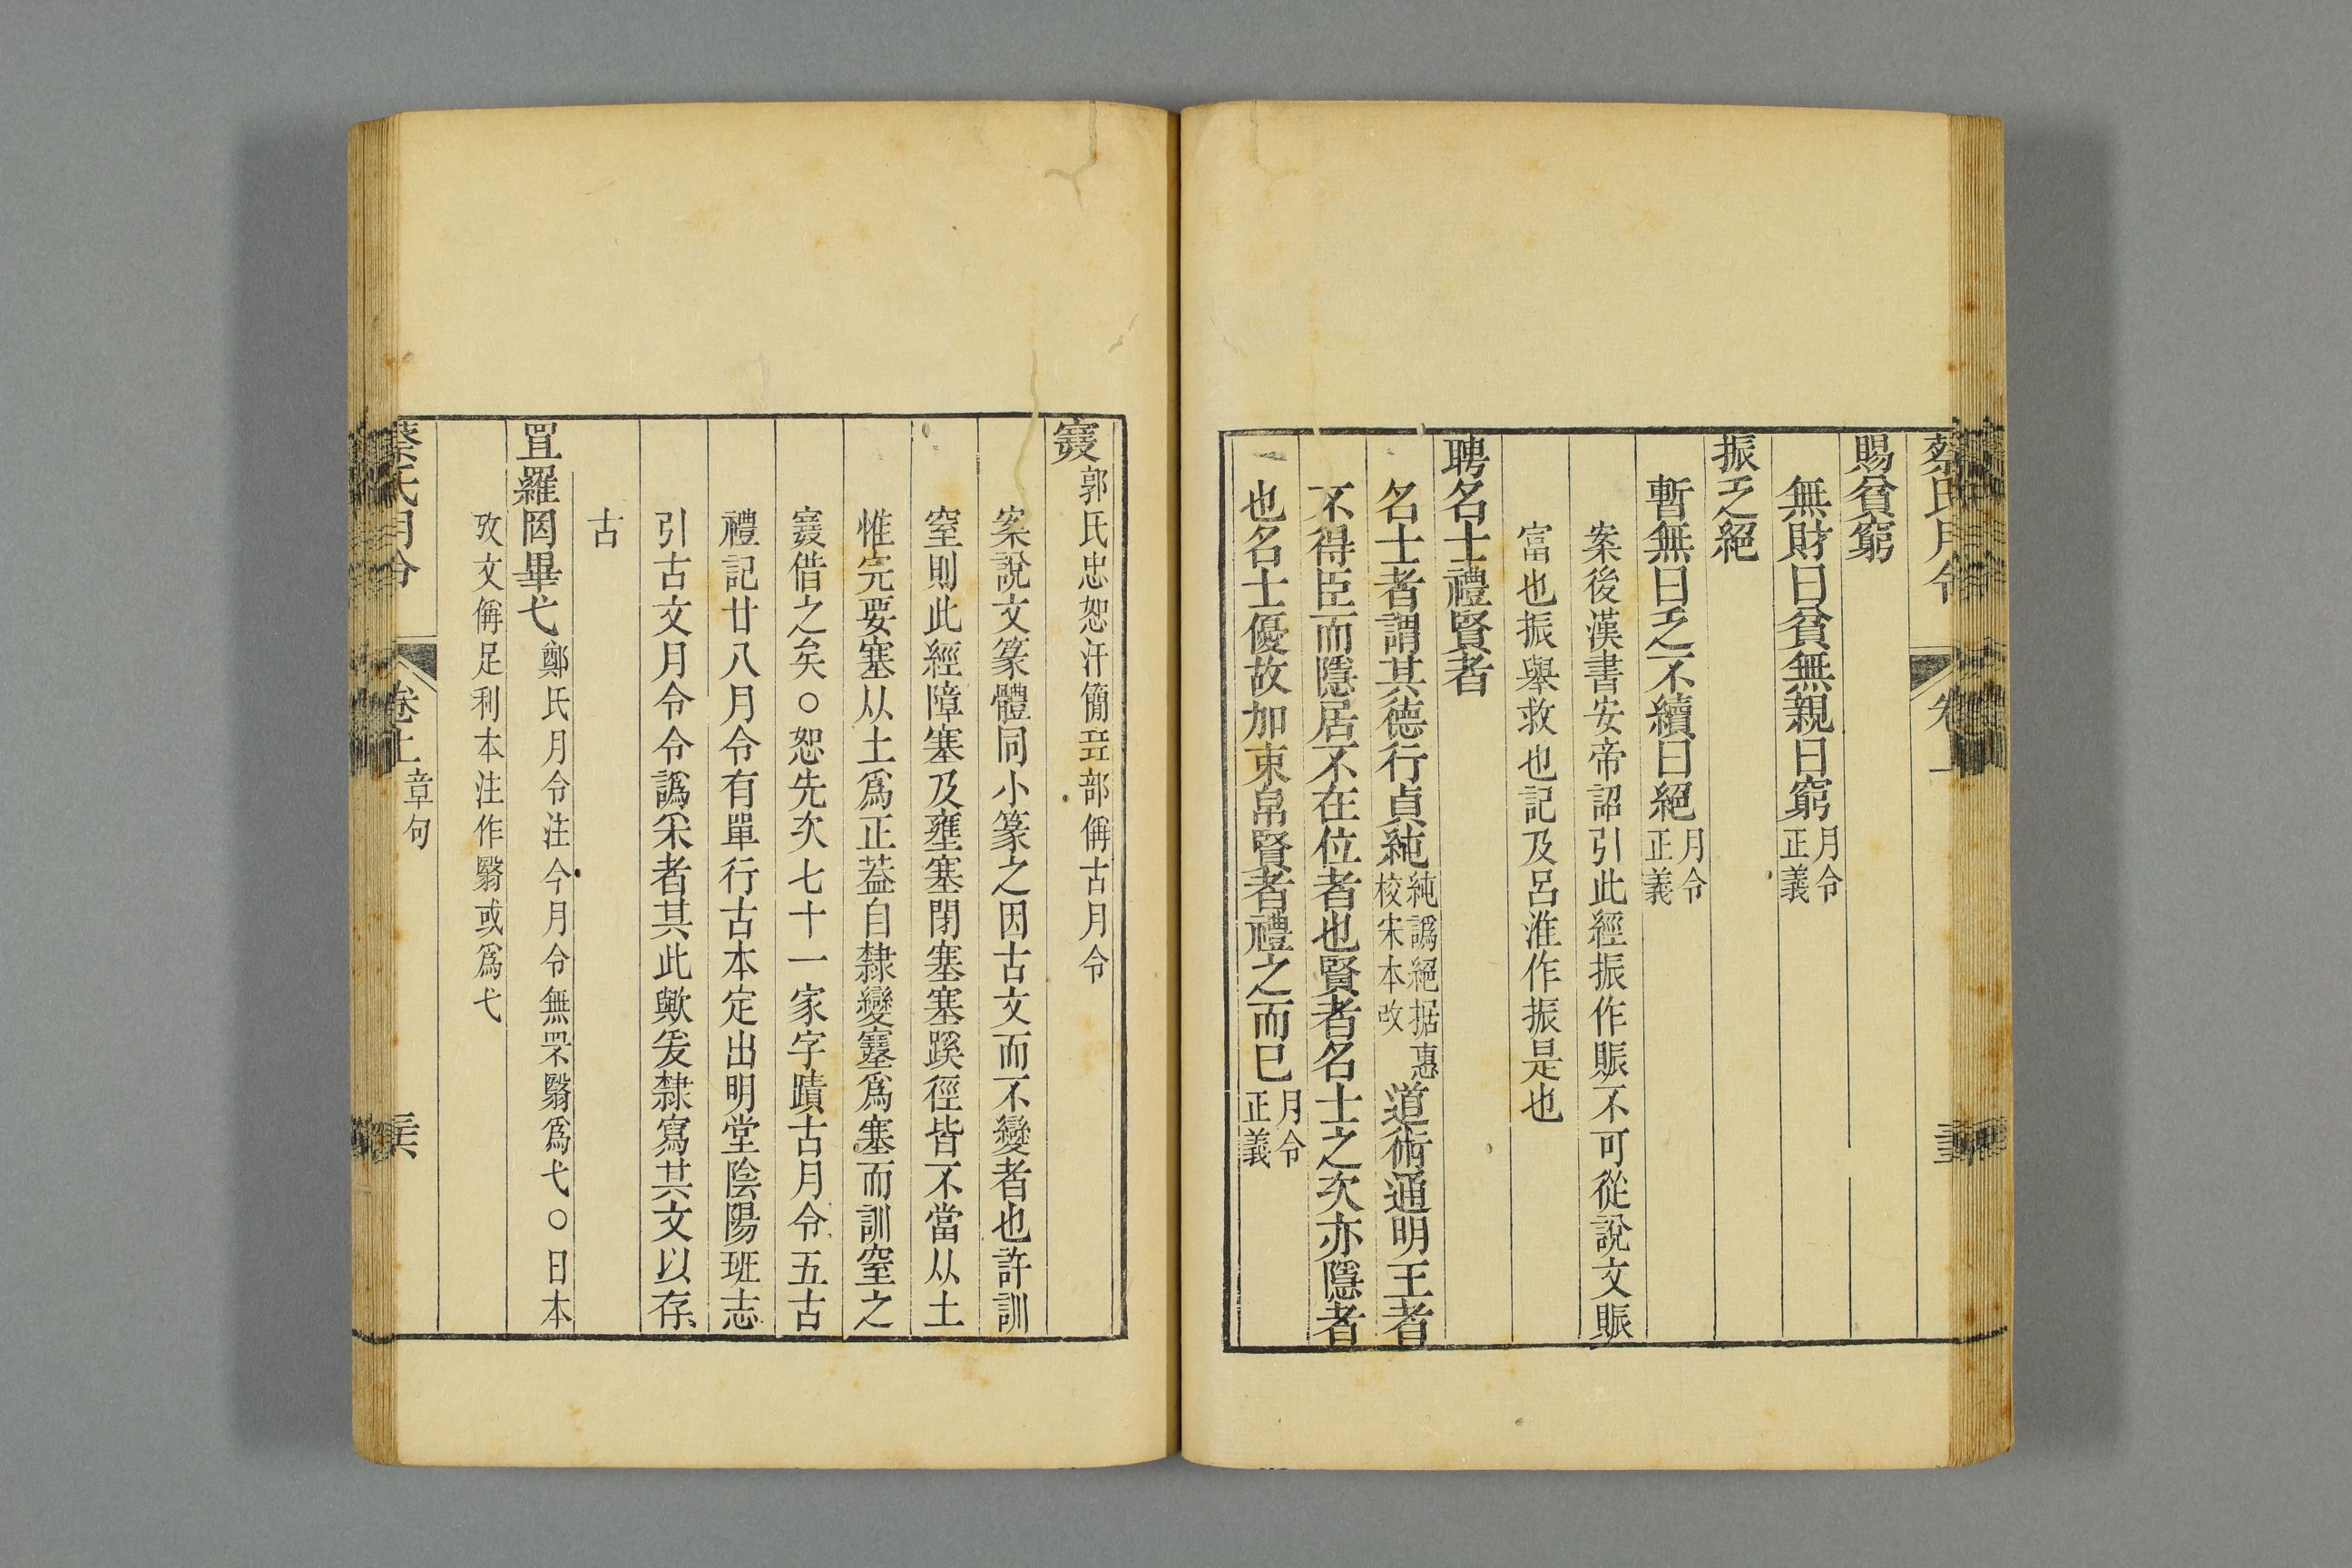 蔡氏月令 卷上
賜貧窮
無財曰貧無親曰窮月令正義
振乏絕
暫無曰乏不續曰絕月令正義
案後漢書安帝詔引此經振作賑不可從說文賑
富也振舉救也記及呂淮作振是也
聘名士禮賢者
名士者謂其德行貞純純譌絕据惠校宋本改道術通明王者
不得臣而隱居不在位者也賢者名士之次亦隱者
也名士優故加束帛賢者禮之而已月令正義
𡫳郭氏忠恕汗簡㠭部偁古月令
案說文篆體同小篆之因古文而不變者也許訓
窒則此經障塞及壅塞閉塞塞蹊徑皆不當从土
惟完要塞从土爲正葢自隸變𡫳爲塞而訓窒之
𡫳借之矣○恕先次七十一家字蹟古月令五古
禮記廿八月令有單行古本定出明堂陰陽班志
引古文月令令譌采者其此歟爰隸寫其文以存
古
罝羅罔畢弋鄭氏月令注今月令無罘翳爲弋○日本
攷文偁足利本注作翳或爲弋
蔡氏月令 卷上 章句